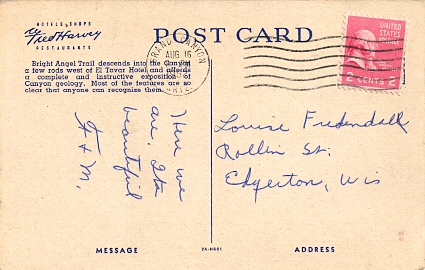 HOTELS • SHOPS
Fred Harvey
RESTAURANTS
POST CARD
Bright Angel Trail descends into the Canyon
a few rods west of El Tovar Hotel and affords
a complete and instructive exposition of
Canyon geology. Most of the features are so
clear that anyone can recognize them.
GRAND CANYON
AUG 16
ARIZ.
UNITED
STATES
POSTAGE
2 CENTS 2
Here we
are. Its
beautiful
F + M.
Louise Fredendall
Rollin St.
Edgerton, Wis
MESSAGE
7A-H551
ADDRESS